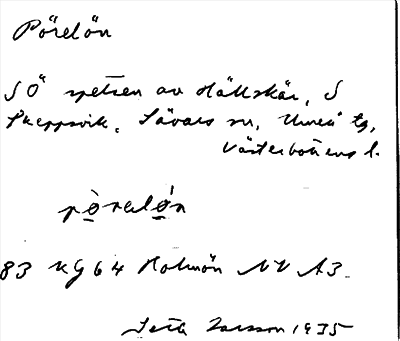 Pörelön
SÖ spetsen av Hällskär, S
Skeppsvik, Sävars sn, Umeå tg,
Västerbottens l.
pò̱rəló̱n
83 KG 64 Holmön NV A3
Larsson 1935